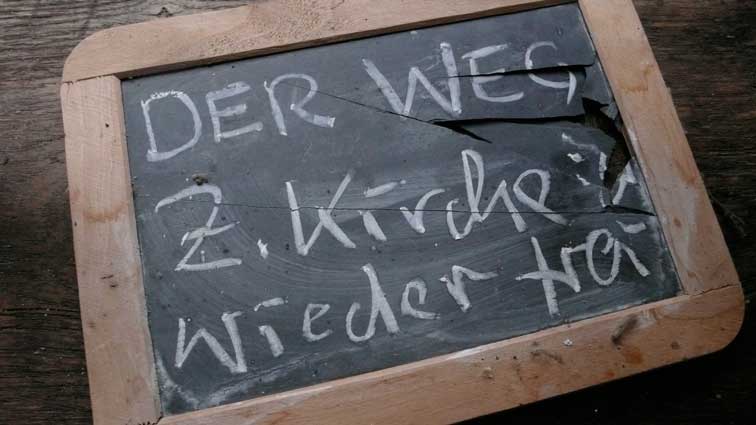 DER WEG
Z. Kirche
wieder frei